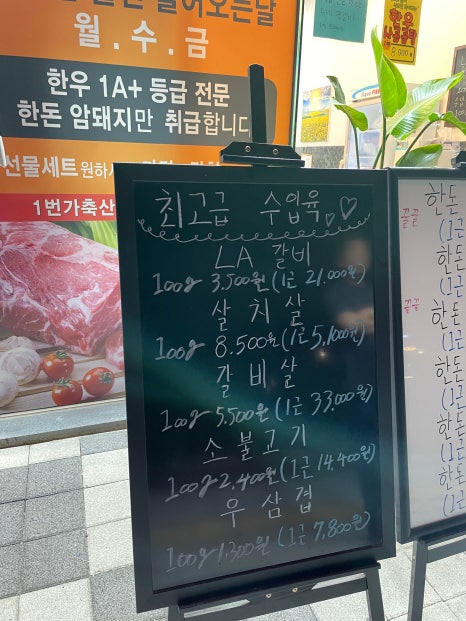 들어오는날
월.수.금
한우 1A+ 등급 전문
한돈 암돼지만 취급합니다
선물세트
1번가축산
한우
8,000원
최고급 수입육
LA 갈비
100g 3,500원 (1근 21,000원)
살치살
100g 8.500원 (1근 51,000원)
갈비살
100g 5,500원 (1근 33,000원)
소불고기
100g 2,400원 (1근 14,400원)
우삼겹
100g 1,300원 (1근 7,800원)
한돈
꼴꼴
(1근
한돈
(1근
꼴꼴
한돈
(1근
한돈
(1근
한돈
(1근
한돈
(1근